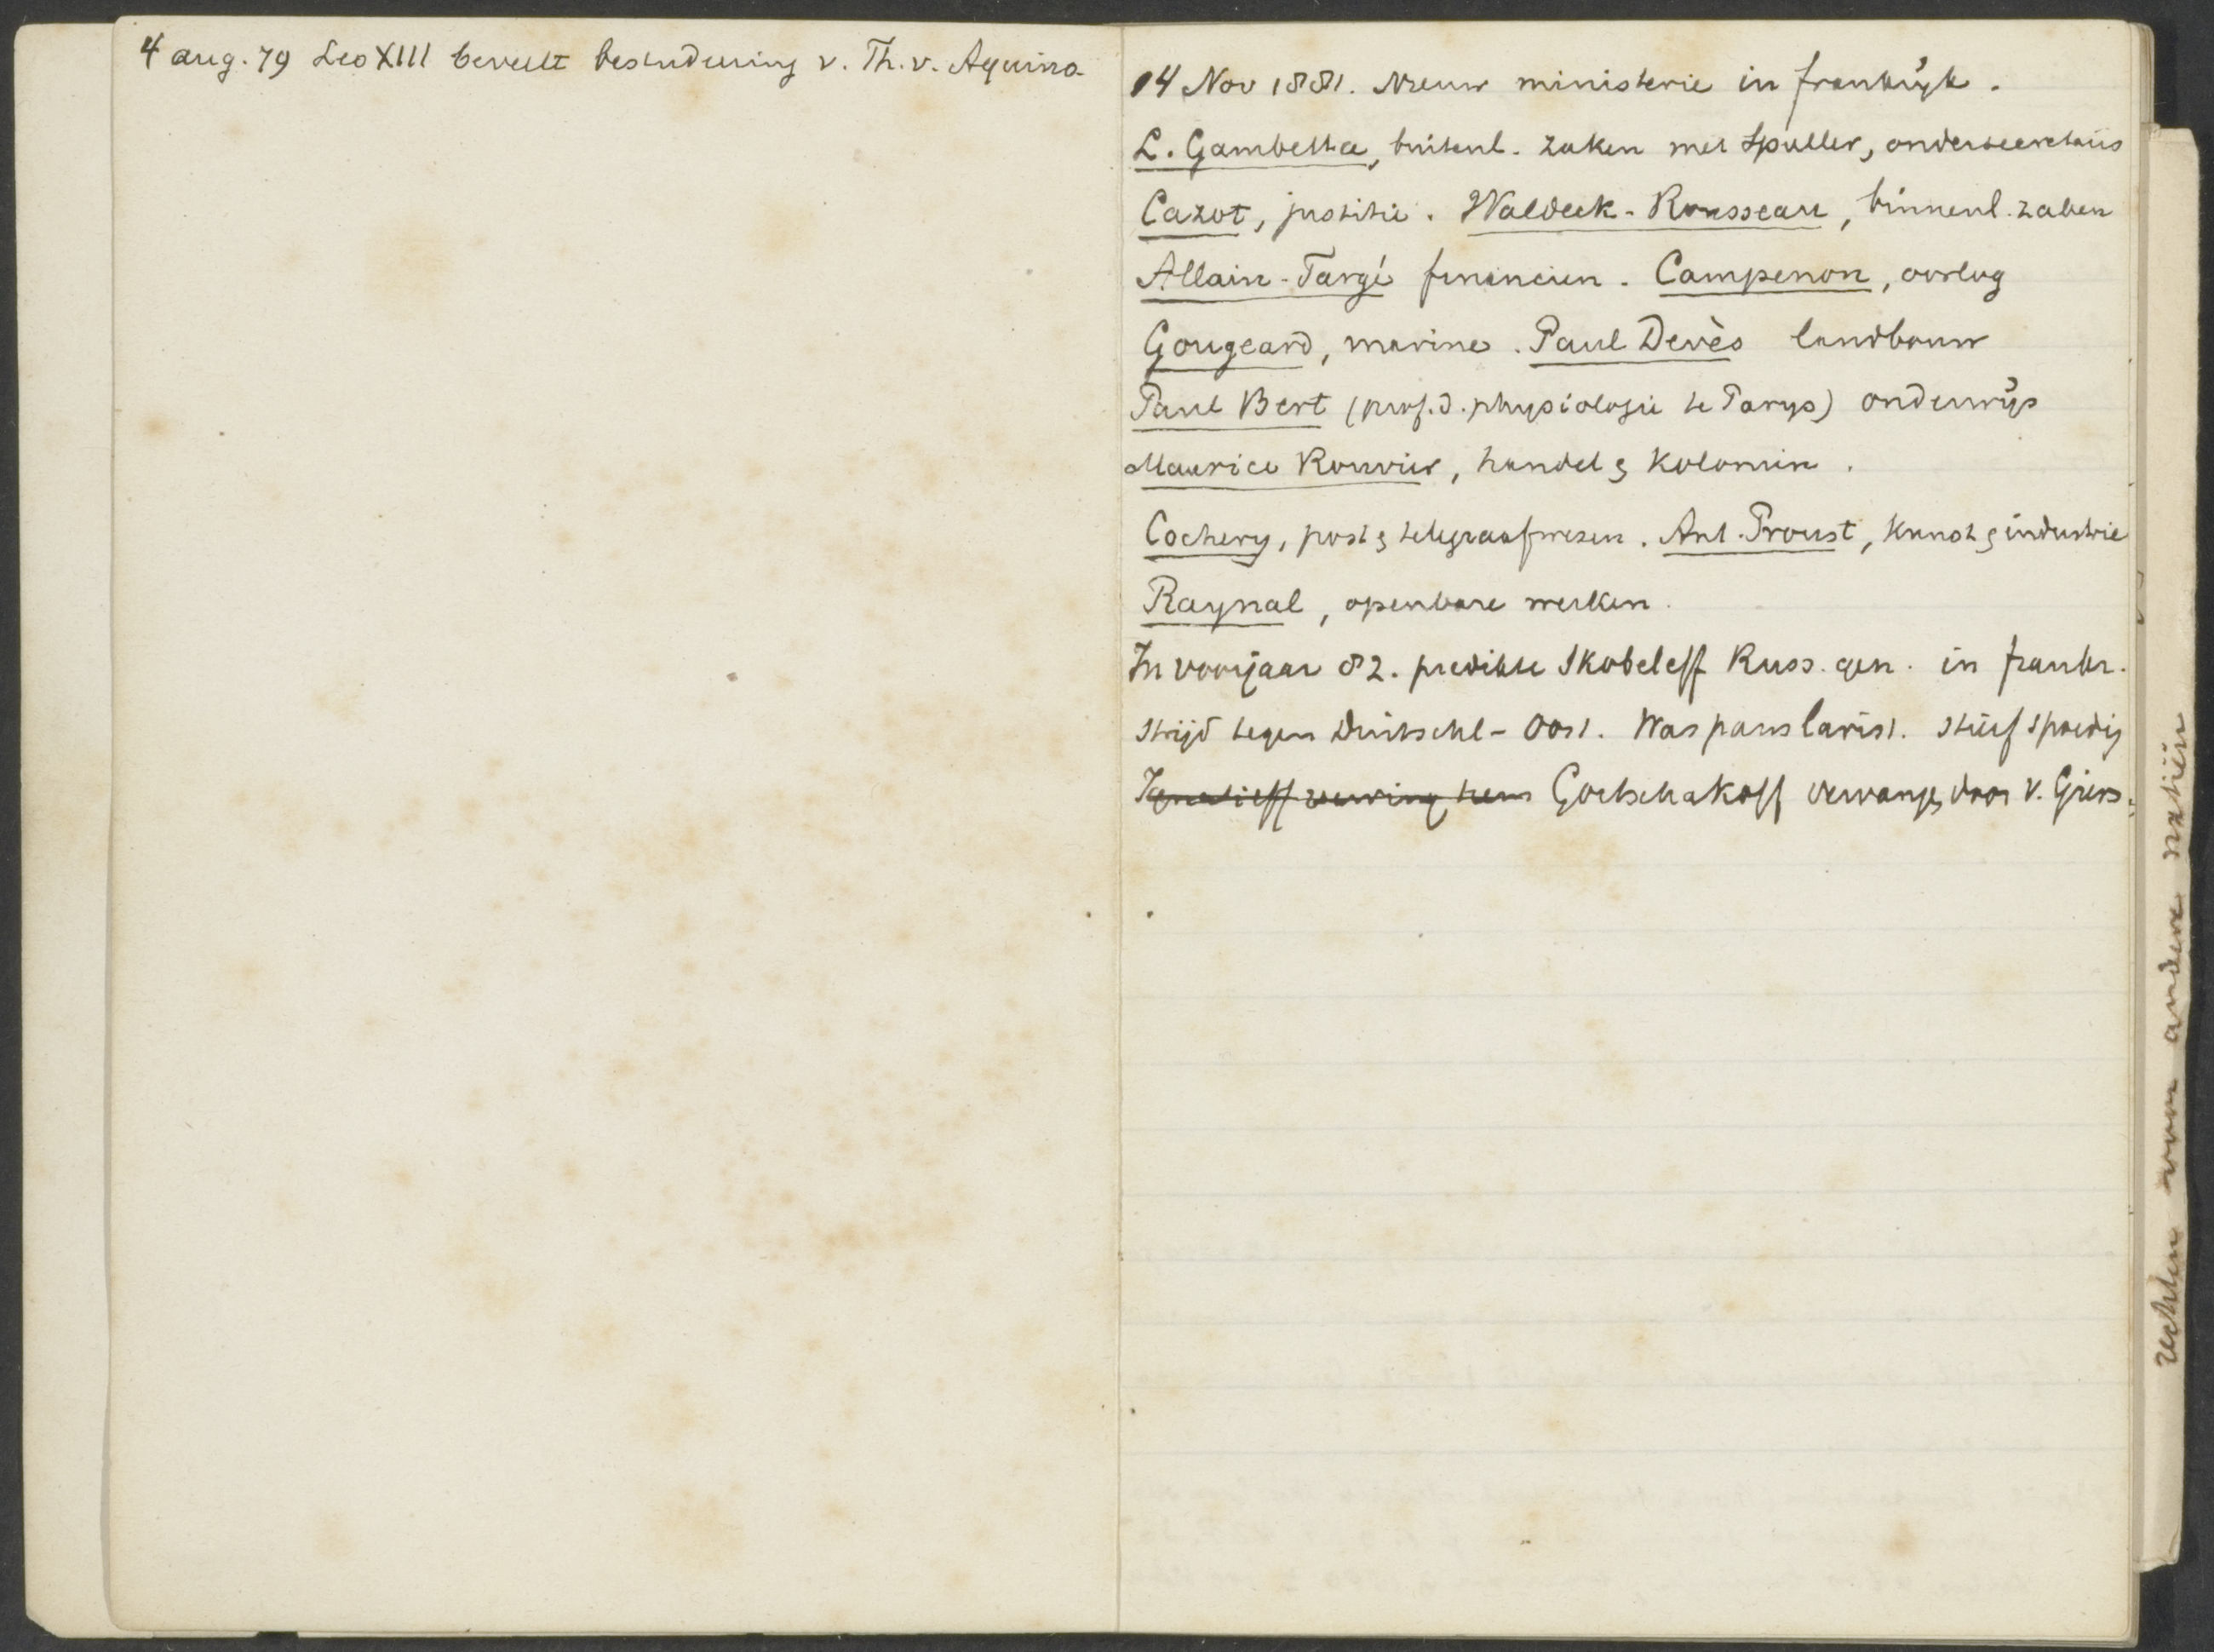 4 aug. 79 Leo XIII beveelt bestudeering v. Th. v. Aquino
14 Nov 1881. Nieuw ministerie in frankrijk.
L. Gambetta, buitenl. zaken met Spuller, ondersecretaris
Cazot, justitie. Waldeck-Rousseau, binnenl. zaken
Allain-Targé financien. Campenon, oorlog
Gougeard, marine. Paul Devès landbouw
Paul Bert (prof. d. physiologie te Parys) onderwijs
Maurice Rouvier, handel & Kolonien.
Cochery, post & telegraafwezen. Ant. Proust, Kunst & industrie
Raynal, openbare werken.
In voorjaar 82. predikte Skobeleff Russ. gen. in frankr.
strijd tegen Duitschl-Oost. Was panslavist. stierf spoedig
Ignatieff verving hem Gortschakoff vervangen door v. Giers.
rechten van andere natiën